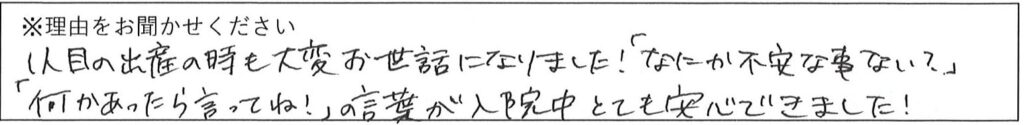 ※理由をお聞かせください
1人目の出産の時も大変お世話になりました!「なにか不安な事ない?」
「何かあったら言ってね!」の言葉が入院中とても安心できました!